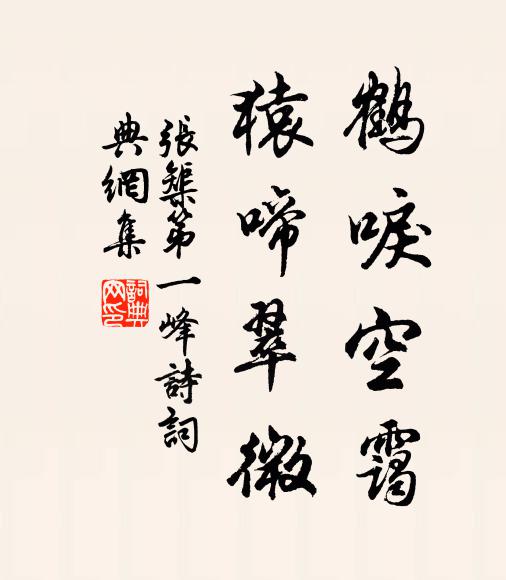 鶴唳空靄
猿啼翠微
張榘第一峰詩詞
典網集
詞典網印